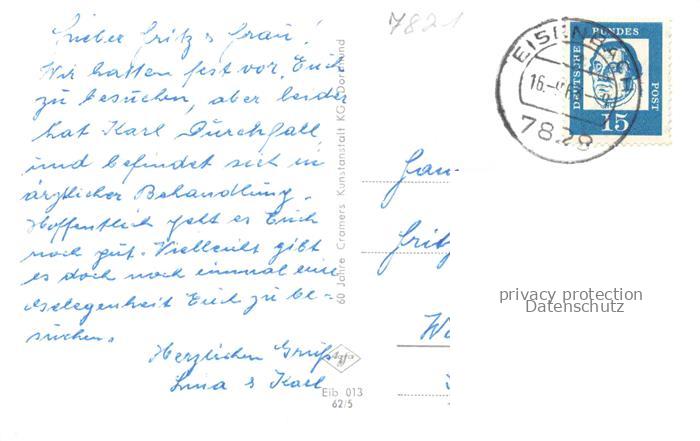 Lieber Fritz & Frau!
Wir hatten fest vor, Euch
zu besuchen, aber leider
hat Karl Durchfall
und befindet sich in
ärztlicher Behandlung.
Hoffentlich geht es Euch
noch gut. Vielleicht gibt
es doch noch einmal eine
Gelegenheit Euch zu be-
suchen.
Herzlichen Gruß
Lina & Karl
60 Jahre Cramers Kunstanstalt KG, Dortmund
Agfa
Eib 013
62/5
7821
EISENBACH
16.
7829
DEUTSCHE BUNDES POST
15
Fritz
privacy protection
Datenschutz